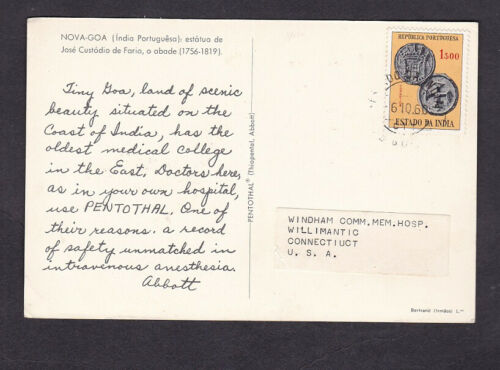 NOVA-GOA (Índia Portuguêsa): estátua de
José Custódio de Faria, o abade (1756-1819).
Tiny Goa, land of scenic
beauty situated on the
Coast of India, has the
oldest medical college
in the East. Doctors here,
as in your own hospital,
use PENTOTHAL. One of
their reasons: a record
of safety unmatched in
intravenous anesthesia.
Abbott
PENTOTHAL® (Thiopental, Abbott)
REPÚBLICA PORTUGUESA
1$00
6 10.60
ESTADO DA ÍNDIA
WINDHAM COMM.MEM.HOSP.
WILLIMANTIC
CONNECTIUCT
U. S. A.
Bertrand (Irmãos) L.da